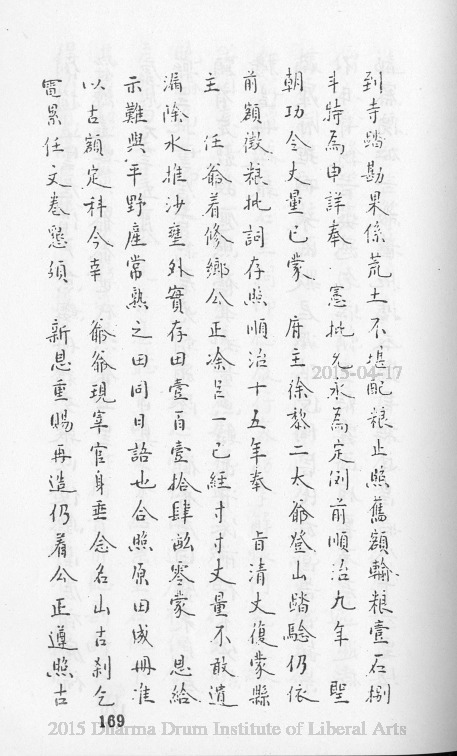 到寺踏勘果係荒土不堪配粮止照舊額輸粮壹石捌
斗特為申詳奉 憲批允永為定例前順治九年 聖
朝功令丈量已蒙 府主徐黎二太爺登山踏驗仍依
前額徵粮批詞存照順治十五年奉 旨清丈復蒙縣
主 任爺着修鄉公正凃 一已經寸寸丈量不敢遺
漏除水推沙壅外實存田壹百壹拾肆畝零蒙 恩給
示難與平野產常熟之田同日語也合照原田成冊准
以古額定科今幸 爺爺現宰官身垂念名山古剎乞
電累任文卷懇頒 新恩重賜再造仍着公正遵照古
169
2015-04-17
2015 Dharma Drum Institute of Liberal Arts